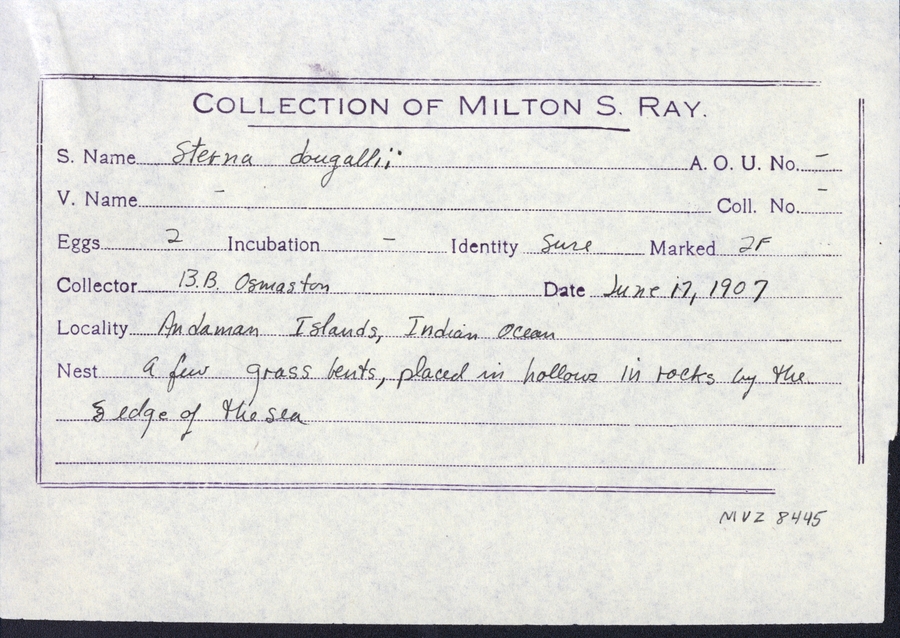 COLLECTION OF MILTON S. RAY.
S. Name Sterna dougallii A. O. U. No. -
V. Name - Coll. No. -
Eggs 2 Incubation - Identity Sure Marked 2F
Collector B.B. Osmaston Date June 17, 1907
Locality Andaman Islands, Indian Ocean
Nest A few grass bents, placed in hollows in rocks by the
edge of the sea
MVZ 8445